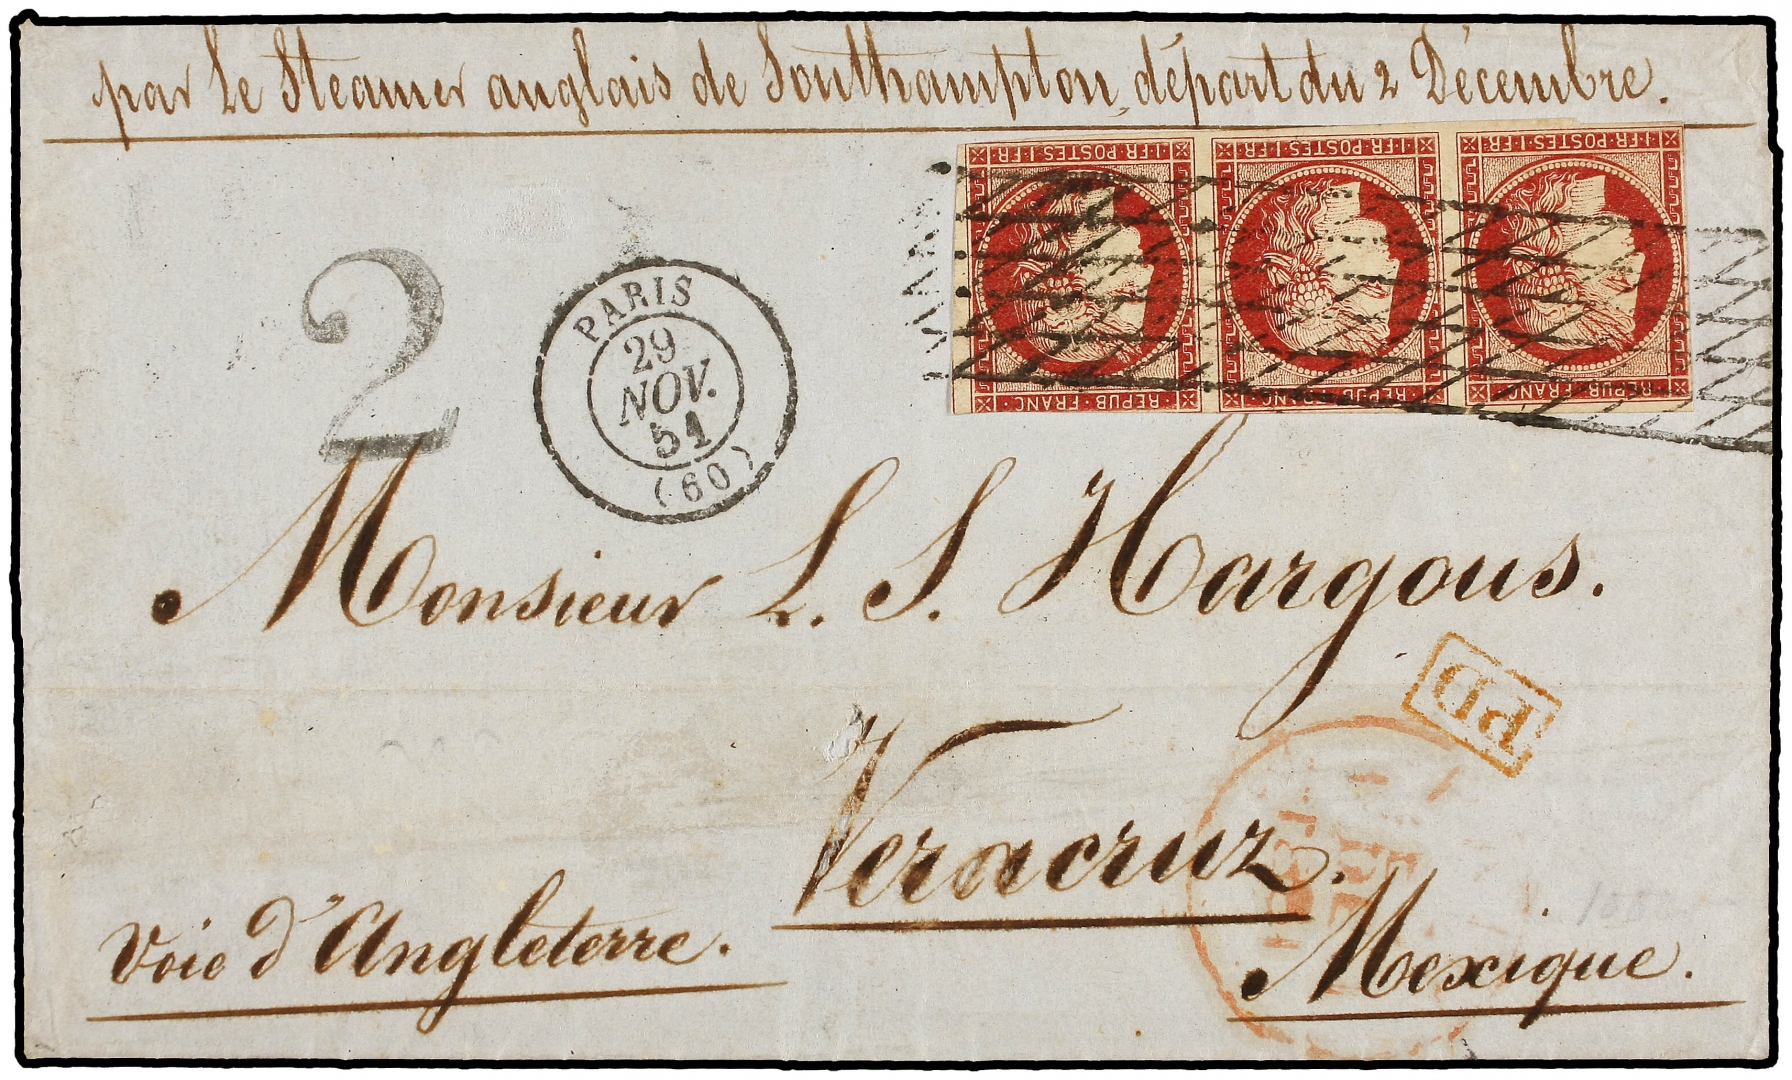 par Le Steamer anglais de Southampton, départ du 2 Décembre.
1·FR·POSTES·1·FR· 1·FR·POSTES·1·FR· 1·FR·POSTES·1·FR·
REPUB·FRANC· REPUB·FRANC· REPUB·FRANC·
2
PARIS
29
NOV.
51
(60)
Monsieur L. S. Hargous.
PD
Veracruz.
Voie d'Angleterre.
Mexique.